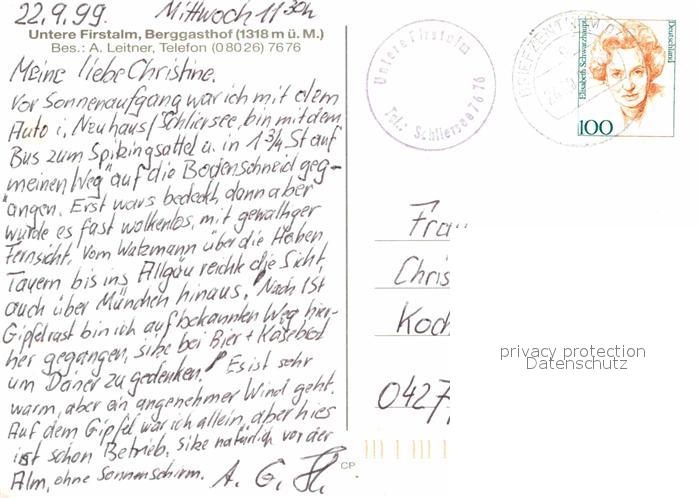 22.9.99. Mittwoch 11 30h
Untere Firstalm, Berggasthof (1318 m ü. M.)
Bes.: A. Leitner, Telefon (0 80 26) 76 76
Meine liebe Christine.
Vor Sonnenaufgang war ich mit dem
Auto i, Neuhaus/Schliersee, bin mit dem
Bus zum Spitzingsattel u. in 1 3/4 St auf
"meinen Weg" auf die Bodenschneid geg-
angen. Erst wars bedeckt, dann aber
wurde es fast wolkenlos, mit gewaltiger
Fernsicht. Vom Watzmann über die Hohen
Tauern bis ins Allgäu reichte die Sicht,
auch über München hinaus. Nach 1St
Gipfelrast bin ich auf bekannten Weg hier-
her gegangen, sitze bei Bier + Käsebrot
um Deiner zu gedenken! Es ist sehr
warm, aber ein angenehmer Wind geht.
Auf dem Gipfel war ich allein, aber hies
ist schon Betrieb. Sitze natürlich vor der
Alm, ohne Sonnenschirm. A. G.
CP
Untere Firstalm
Tel.: Schliersee 7676
BRIEFZENTRUM
Elisabeth Schwarzhaupt
Deutschland
100
Frau
Chris
Koch
0427
privacy protection
Datenschutz